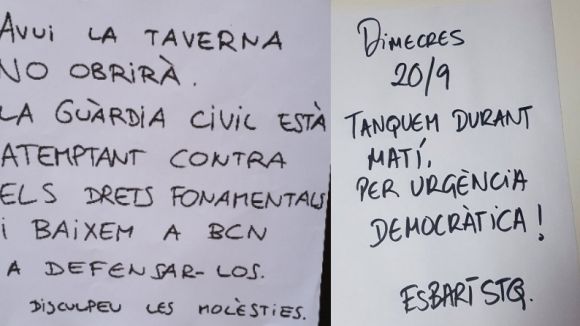 AVUI LA TAVERNA
NO OBRIRÀ.
LA GUÀRDIA CIVIL ESTÀ
ATEMPTANT CONTRA
ELS DRETS FONAMENTALS
I BAIXEM A BCN
A DEFENSAR-LOS.
DISCULPEU LES MOLÈSTIES.
DIMECRES
20/9
TANQUEM DURANT
MATÍ,
PER URGÈNCIA
DEMOCRÀTICA!
ESBART STQ.